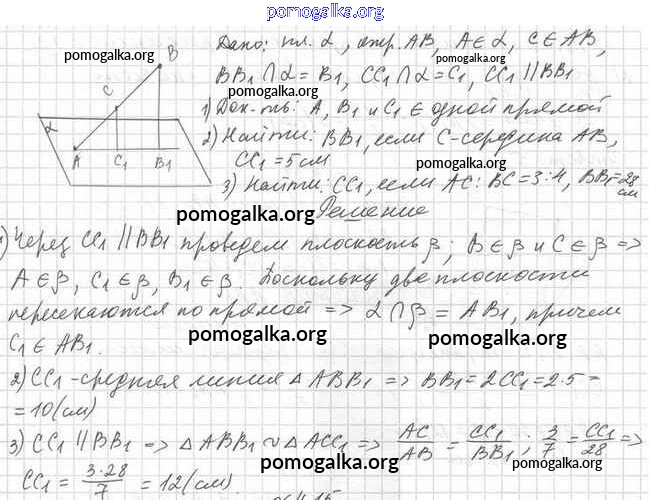 pomogalka.org
pomogalka.org
Дано: пл. α, отр. AB, A∈α, C∈AB,
BB₁∩α=B₁, CC₁∩α=C₁, CC₁∥BB₁
pomogalka.org
1) Док-ть: A, B₁ и C₁ ∈ одной прямой
2) Найти: BB₁, если C-середина AB,
CC₁=5см
pomogalka.org
3) Найти: CC₁, если AC:BC=3:4, BB₁=28 см
B
C
α
A C₁ B₁
pomogalka.org
Решение
1) Через CC₁∥BB₁ проведем плоскость β; B∈β и C∈β =>
A∈β, C₁∈β, B₁∈β. Поскольку две плоскости
пересекаются по прямой => α∩β = AB₁, причем
C₁∈AB₁.
pomogalka.org
pomogalka.org
2) CC₁-средняя линия △ABB₁ => BB₁=2CC₁=2·5=
=10(см)
3) CC₁∥BB₁ => △ABB₁ ∾ △ACC₁ => AC/AB = CC₁/BB₁; 3/7 = CC₁/28 =>
pomogalka.org
pomogalka.org
CC₁ = 3·28/7 = 12(см).